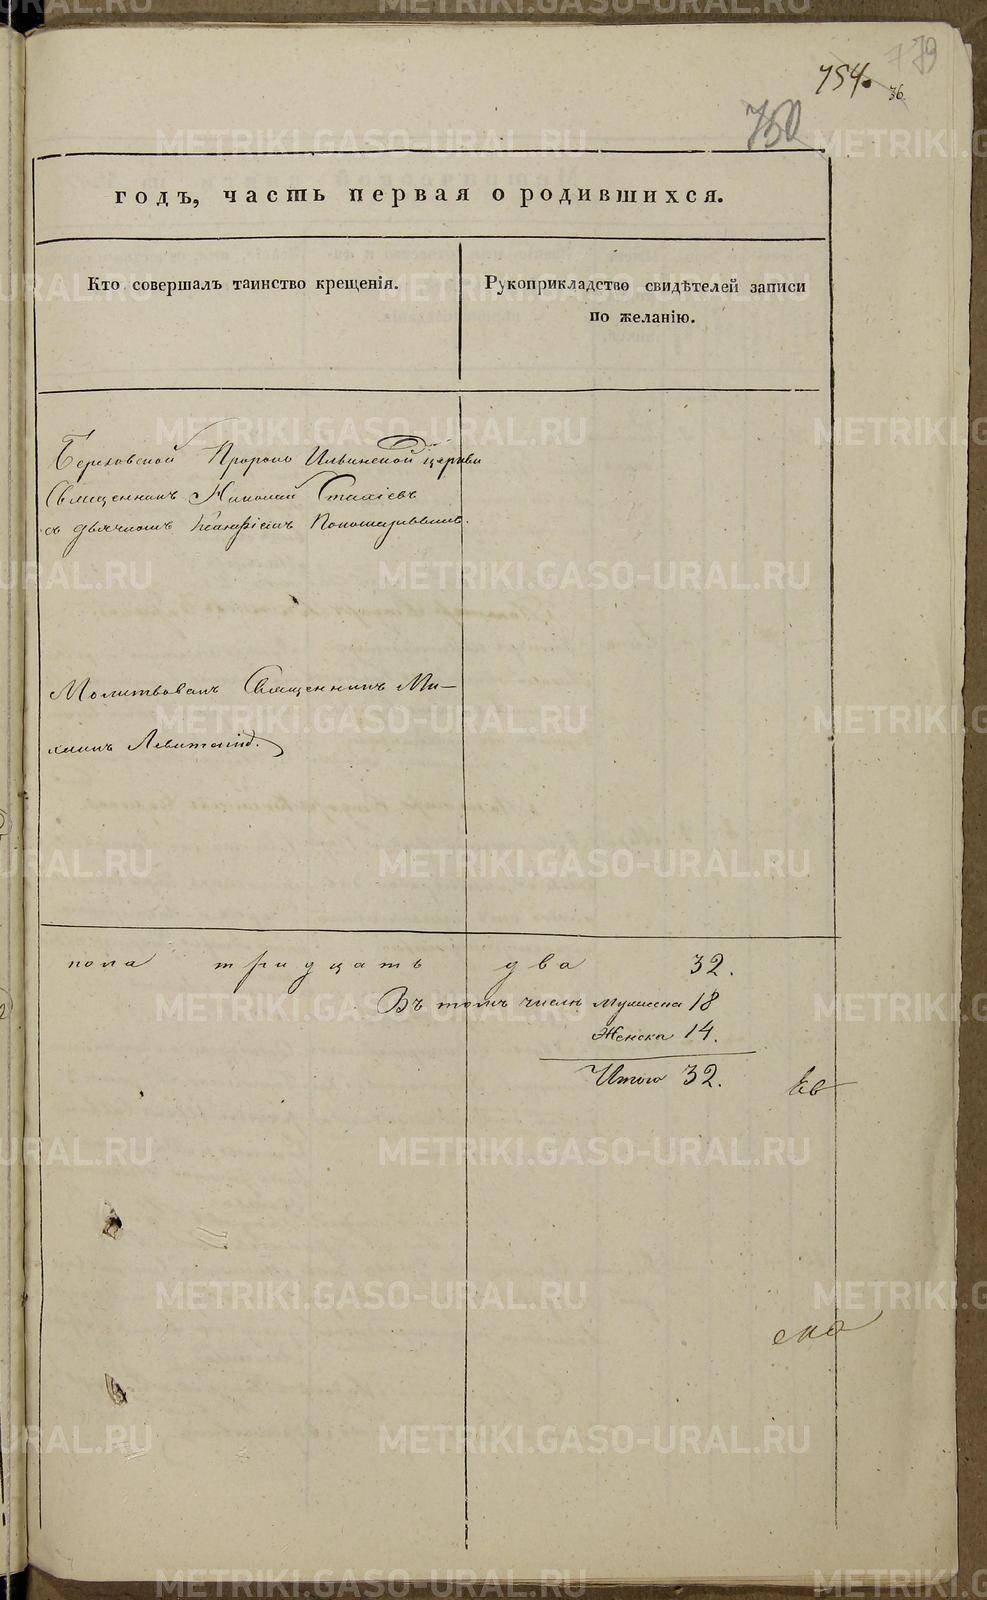 754.
36.
750
годъ, часть первая о родившихся.
Кто совершалъ таинство крещенія.
Рукоприкладство свидѣтелей записи
по желанію.
Пророко Ильинской церкви
Священникъ Николай Стахіевъ
съ дьячкомъ
Молитвовалъ Священникъ Ми-
хаилъ Левитскій.
пола тридцать два 32.
Въ томъ числѣ мужеска 18
Женска 14.
Итого 32.
METRIKI.GASO-URAL.RU